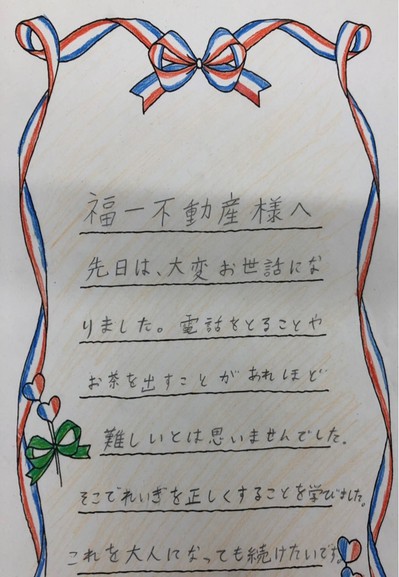 福一不動産様へ
先日は、大変お世話にな
りました。電話をとることや
お茶を出すことがあれほど
難しいとは思いませんでした。
そこでれいぎを正しくすることを学びました。
これを大人になっても続けたいです。